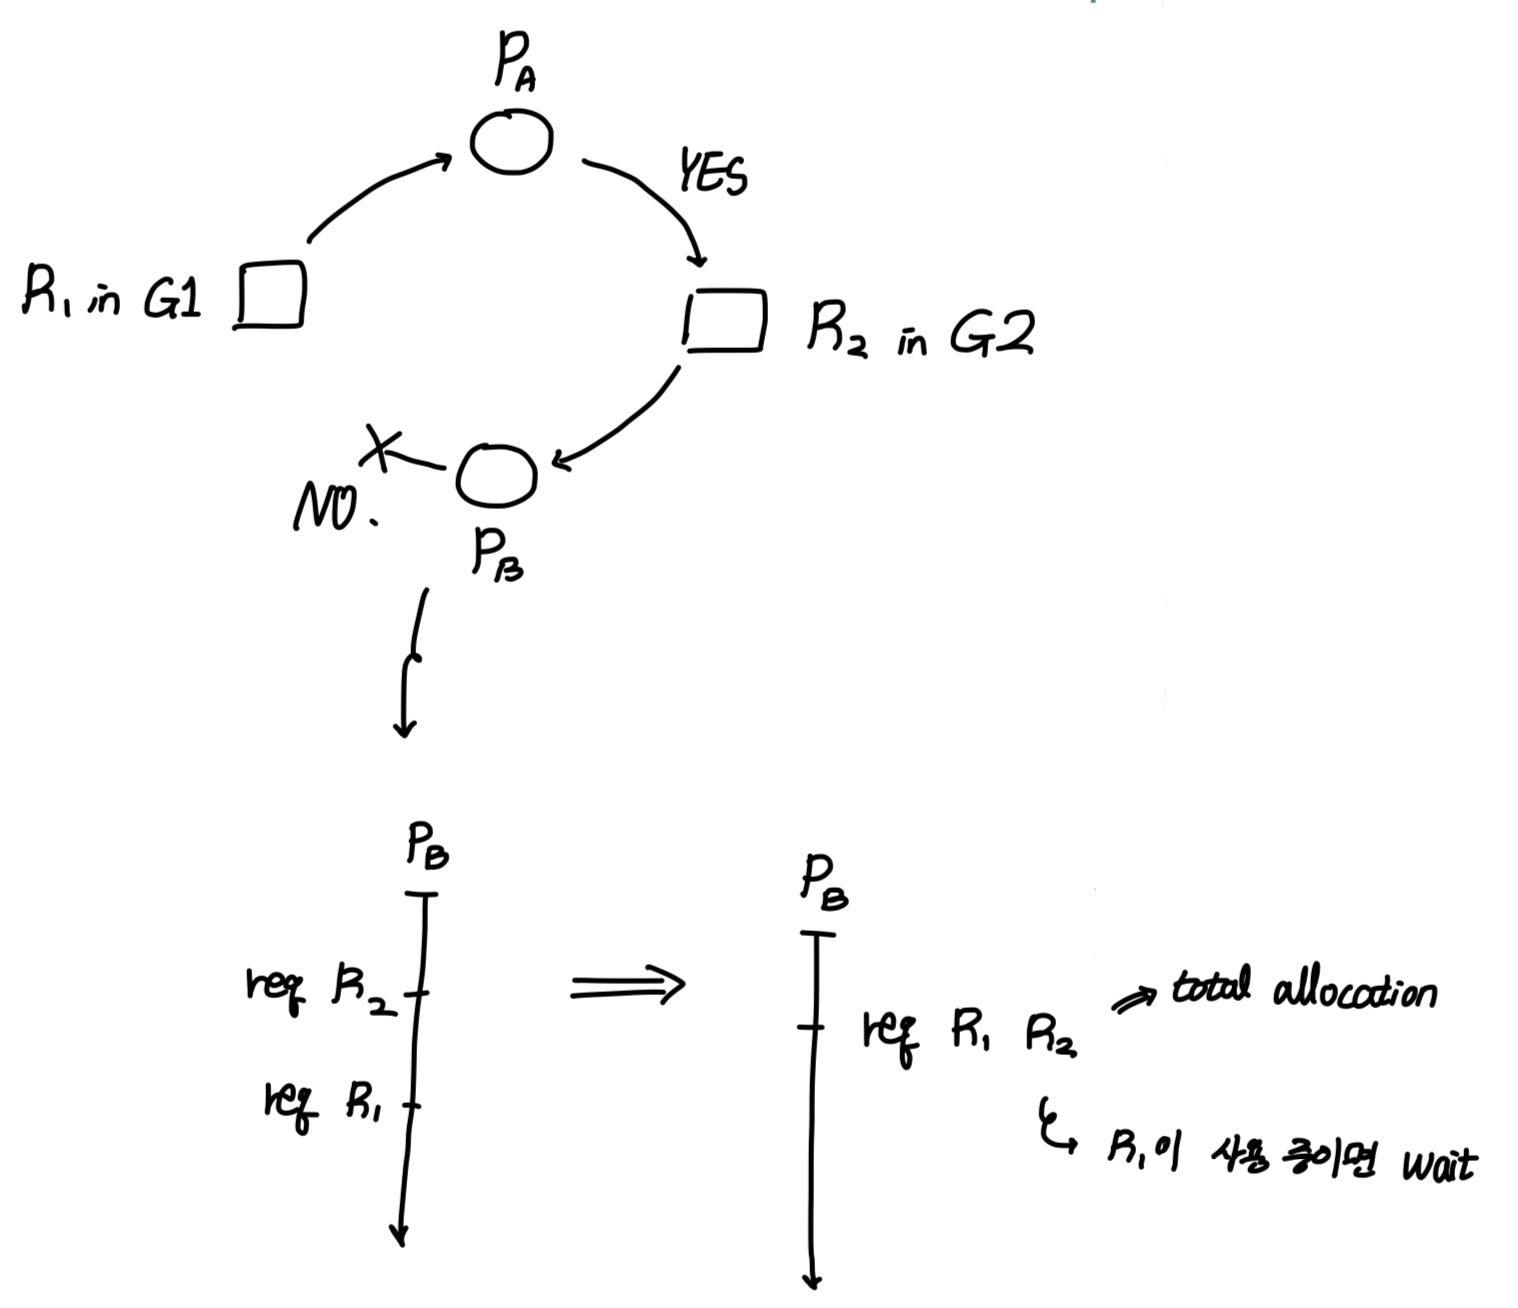 PA
YES
R1 in G1
R2 in G2
NO.
PB
PB
PB
req R2
req R1
req R1 R2
total allocation
R1이 사용 중이면 wait